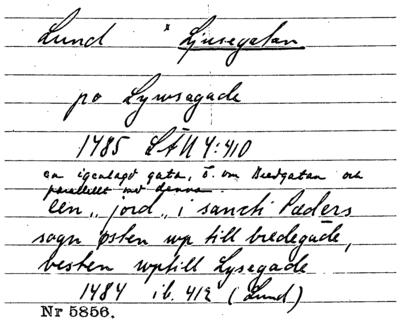 Lund x Ljusegatan
po Lywsagade
1485 LÄU 4:410
en igenlagd gata, ö. om Bredgatan och
parallellt med denna
een „jord„ i sancti Pæders
sogn østen wp till bredegade,
vesten wptill Lysegade
1484 ib. 412 (Lund)
Nr 5856.